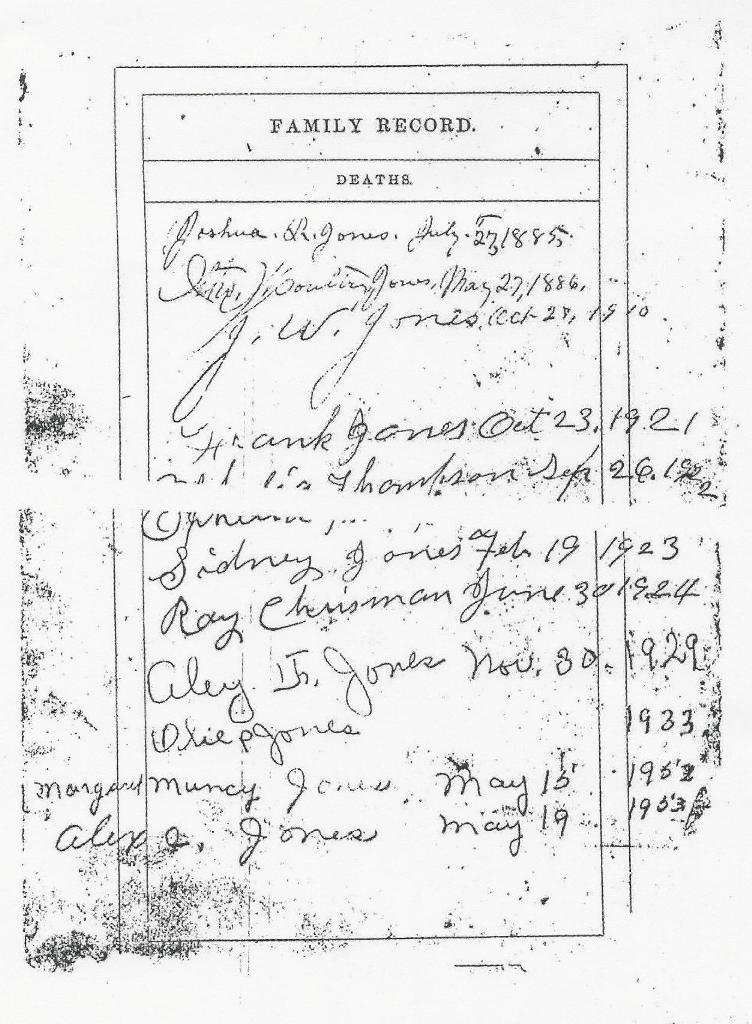 FAMILY RECORD.
DEATHS.
Joshua. R. Jones. July. 27, 1885.
Jones, May 27, 1886.
J. W. Jones, Oct 27, 1910
Frank Jones Oct 23, 1921
Thompson Sep 26. 1922
Sidney Jones Feb 19 1923
Ray Chrisman June 30 1924
Aley Jr. Jones Nov. 30. 1929
Jones 1933
Margaret Muncy Jones May 15 1952
Alex C. Jones May 19 1953